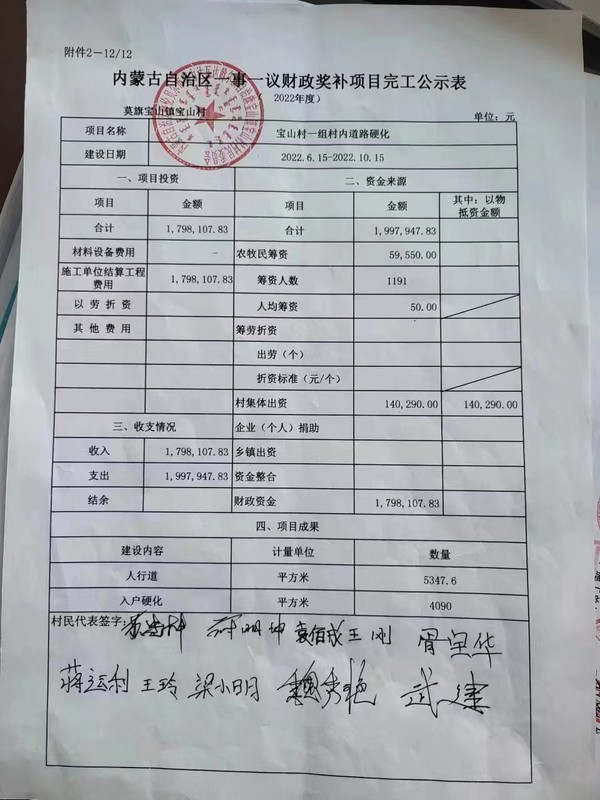 附件2－12/12
内蒙古自治区一事一议财政奖补项目完工公示表
2022年度）
莫旗宝山镇宝山村 单位：元
项目名称 宝山村一组村内道路硬化
建设日期 2022.6.15-2022.10.15
一、项目投资 二、资金来源
项目 金额 项目 金额 其中：以物抵资金额
合计 1,798,107.83 合计 1,997,947.83
材料设备费用 － 农牧民筹资 59,550.00
施工单位结算工程费用 1,798,107.83 筹资人数 1191
以劳折资 人均筹资 50.00
其他费用 筹劳折资
出劳（个）
折资标准（元/个）
村集体出资 140,290.00 140,290.00
三、收支情况 企业（个人）捐助
收入 1,798,107.83 乡镇出资
支出 1,997,947.83 资金整合
结余 财政资金 1,798,107.83
四、项目成果
建设内容 计量单位 数量
人行道 平方米 5347.6
入户硬化 平方米 4090
村民代表签字： 王刚
蒋运利 王玲 梁小明 魏秀艳 武建